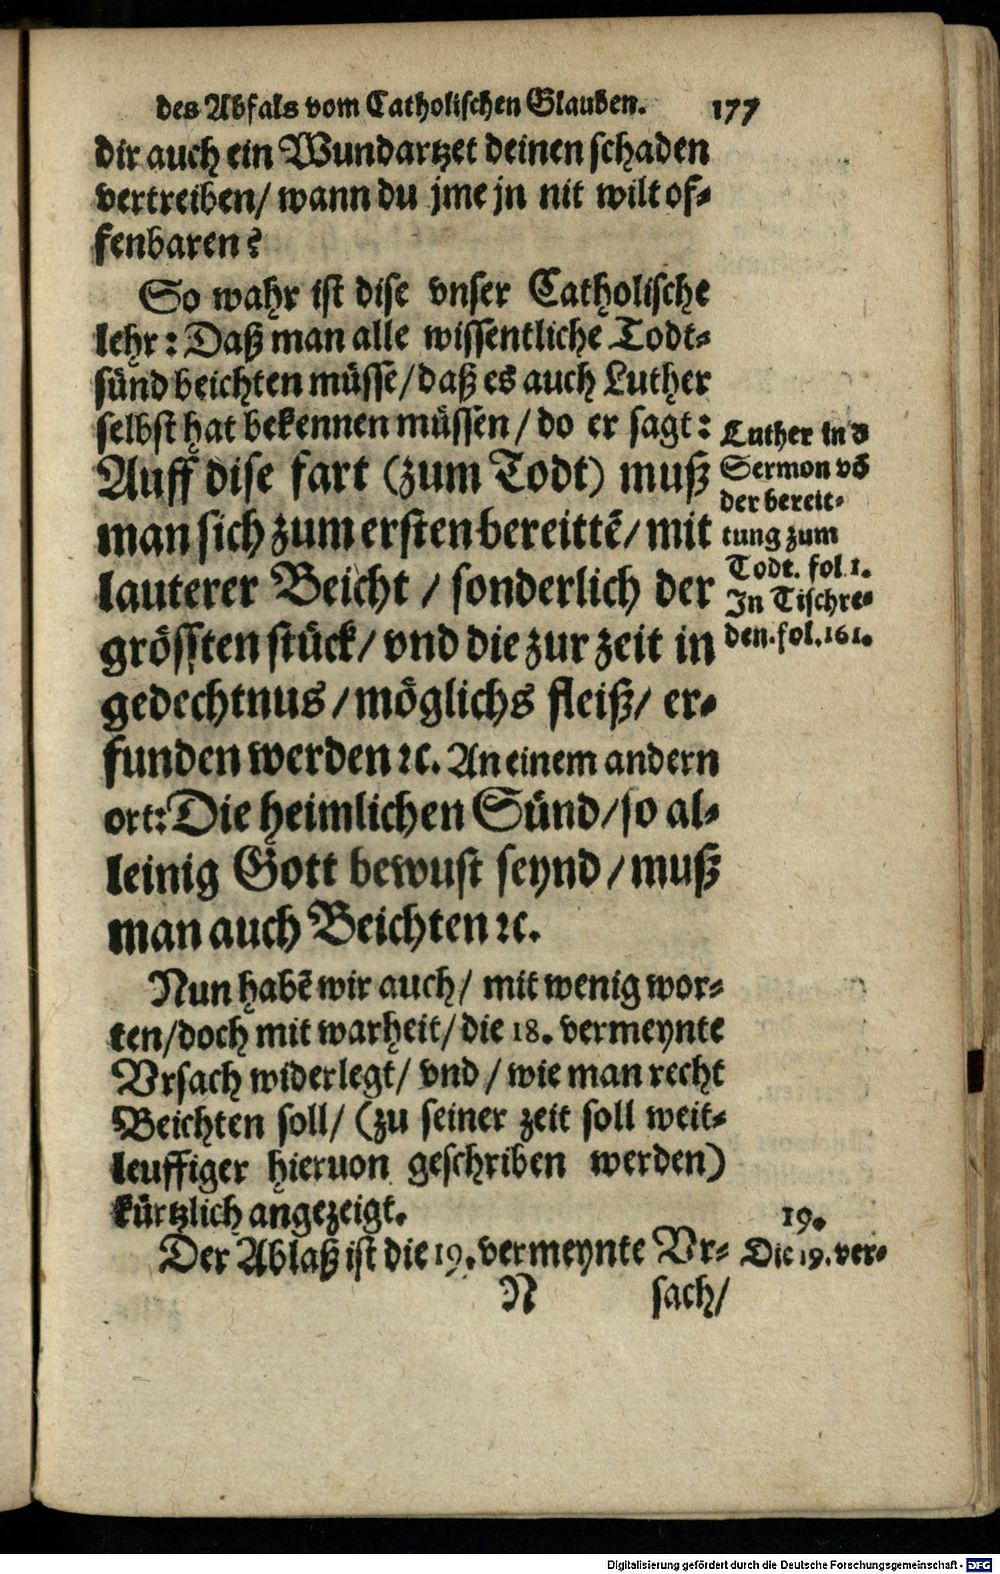 des Abfals vom Catholischen Glauben. 177
dir auch ein Wundartzet deinen schaden
vertreiben/ wann du jme jn nit wilt of⸗
fenbaren?
So wahr ist dise vnser Catholische
lehr: Daß man alle wissentliche Todt⸗
sünd beichten müssē/ daß es auch Luther
selbst hat bekennen müssen/ do er sagt:
Auff dise fart (zum Todt) muß
man sich zum ersten bereittē/ mit
lauterer Beicht / sonderlich der
grössten stück/ vnd die zur zeit in
gedechtnus/ möglichs fleiß/ er⸗
funden werden ꝛc. An einem andern
ort: Die heimlichen Sünd/ so al⸗
leinig Gott bewust seynd/ muß
man auch Beichten ꝛc.
Luther in d
Sermon vō
der bereit⸗
tung zum
Todt. fol 1.
In Tischre⸗
den. fol. 161.
Nun habē wir auch/ mit wenig wor⸗
ten/ doch mit warheit/ die 18. vermeynte
Vrsach widerlegt/ vnd/ wie man recht
Beichten soll/ (zu seiner zeit soll weit⸗
leuffiger hieruon geschriben werden)
kürtzlich angezeigt.
Der Ablaß ist die 19. vermeynte Vr⸗
19.
Die 19. ver⸗
N sach/
Digitalisierung gefördert durch die Deutsche Forschungsgemeinschaft - DFG